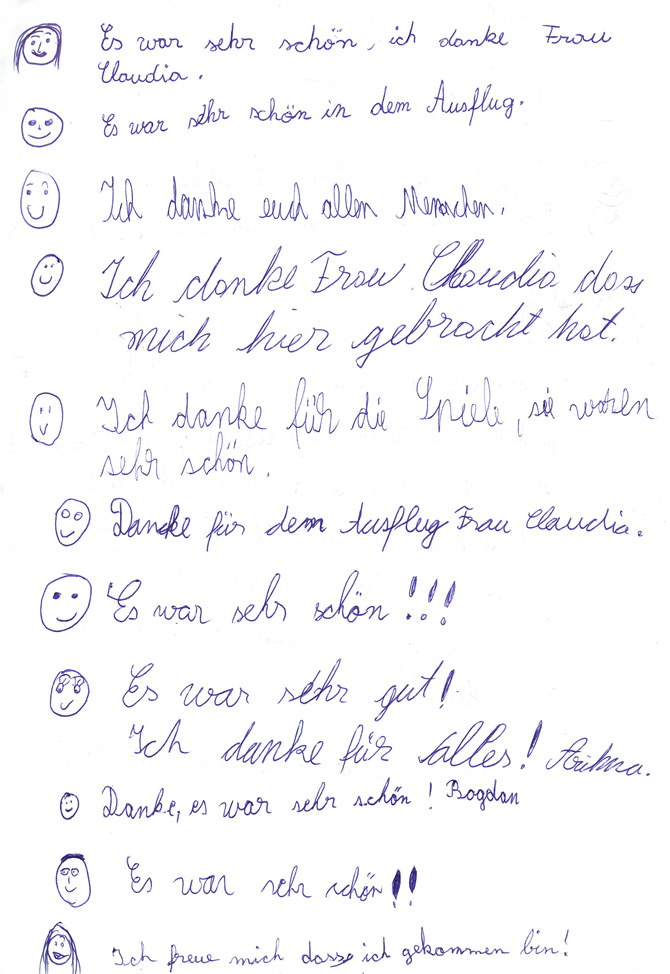 Es war sehr schön, ich danke Frau
Claudia.
Es war sehr schön in dem Ausflug.
Ich danke euch allen Menschen.
Ich danke Frau Claudia dass
mich hier gebracht hat.
Ich danke für die Spiele, sie waren
sehr schön.
Dancke für dem Ausflug Frau Claudia.
Es war sehr schön!!!
Es war sehr gut!
Ich danke für alles!
Danke, es war sehr schön! Bogdan
Es war sehr schön!!
Ich freue mich dass ich gekommen bin!